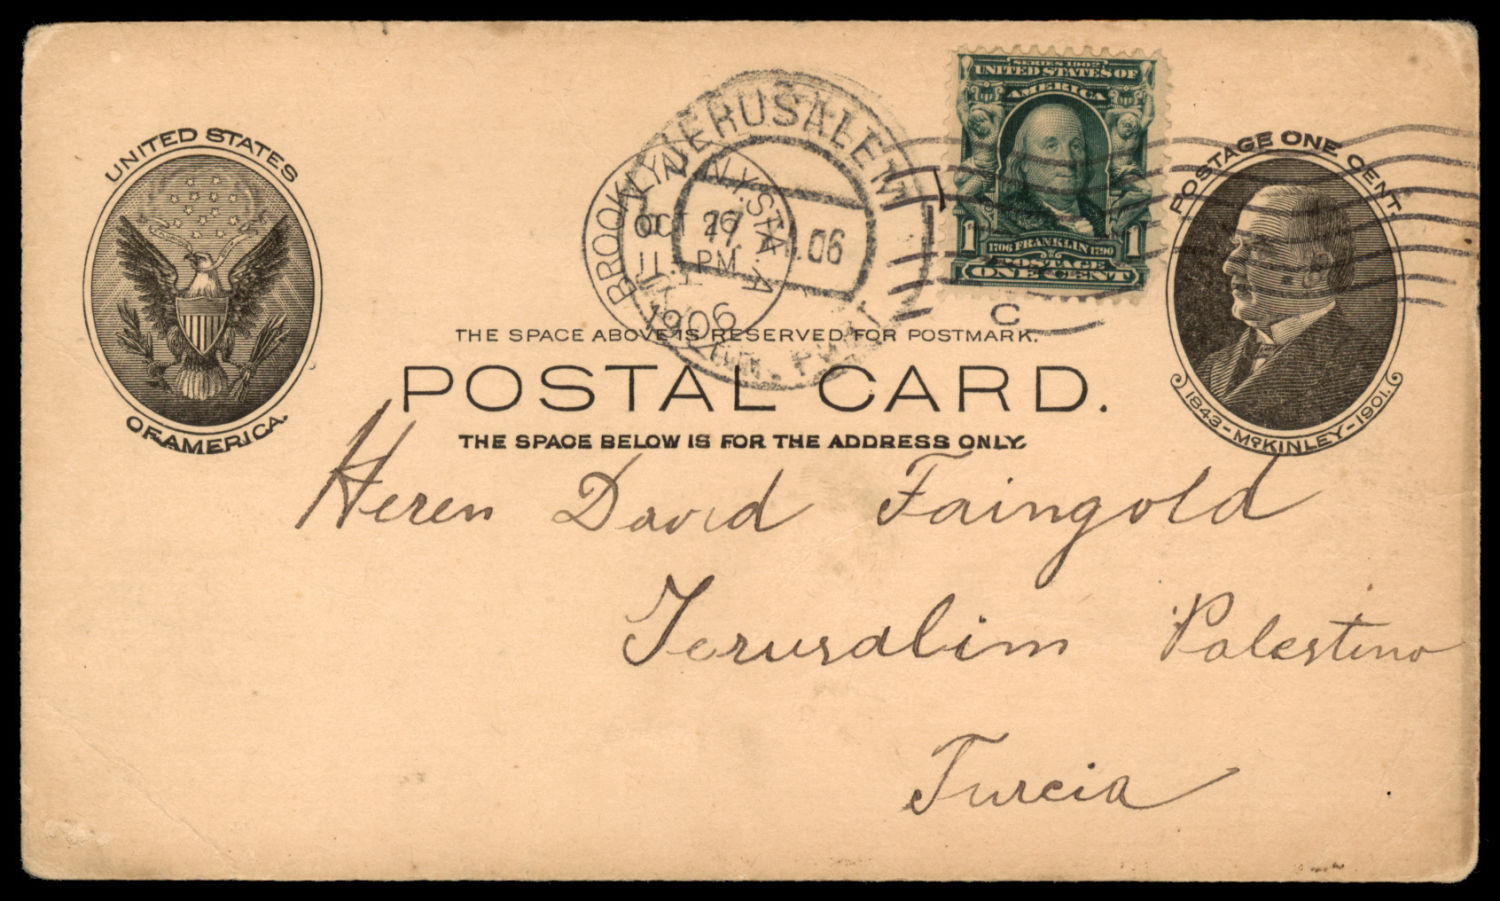 UNITED STATES
OF AMERICA.
JERUSALEM
.06
BROOKLYN, N.Y. STA. A
OCT
PM
1906
SERIES 1902
UNITED STATES OF
AMERICA
1 1706 FRANKLIN 1790 1
POSTAGE
ONE CENT
C
POSTAGE ONE CENT.
1843-McKINLEY-1901.
THE SPACE ABOVE IS RESERVED FOR POSTMARK.
POSTAL CARD.
THE SPACE BELOW IS FOR THE ADDRESS ONLY.
Heren David Faingold
Jerusalim Palestino
Turcia